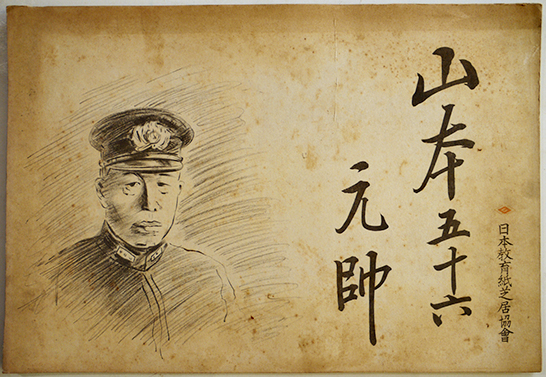 山本五十六
元帥
日本教育紙芝居協會